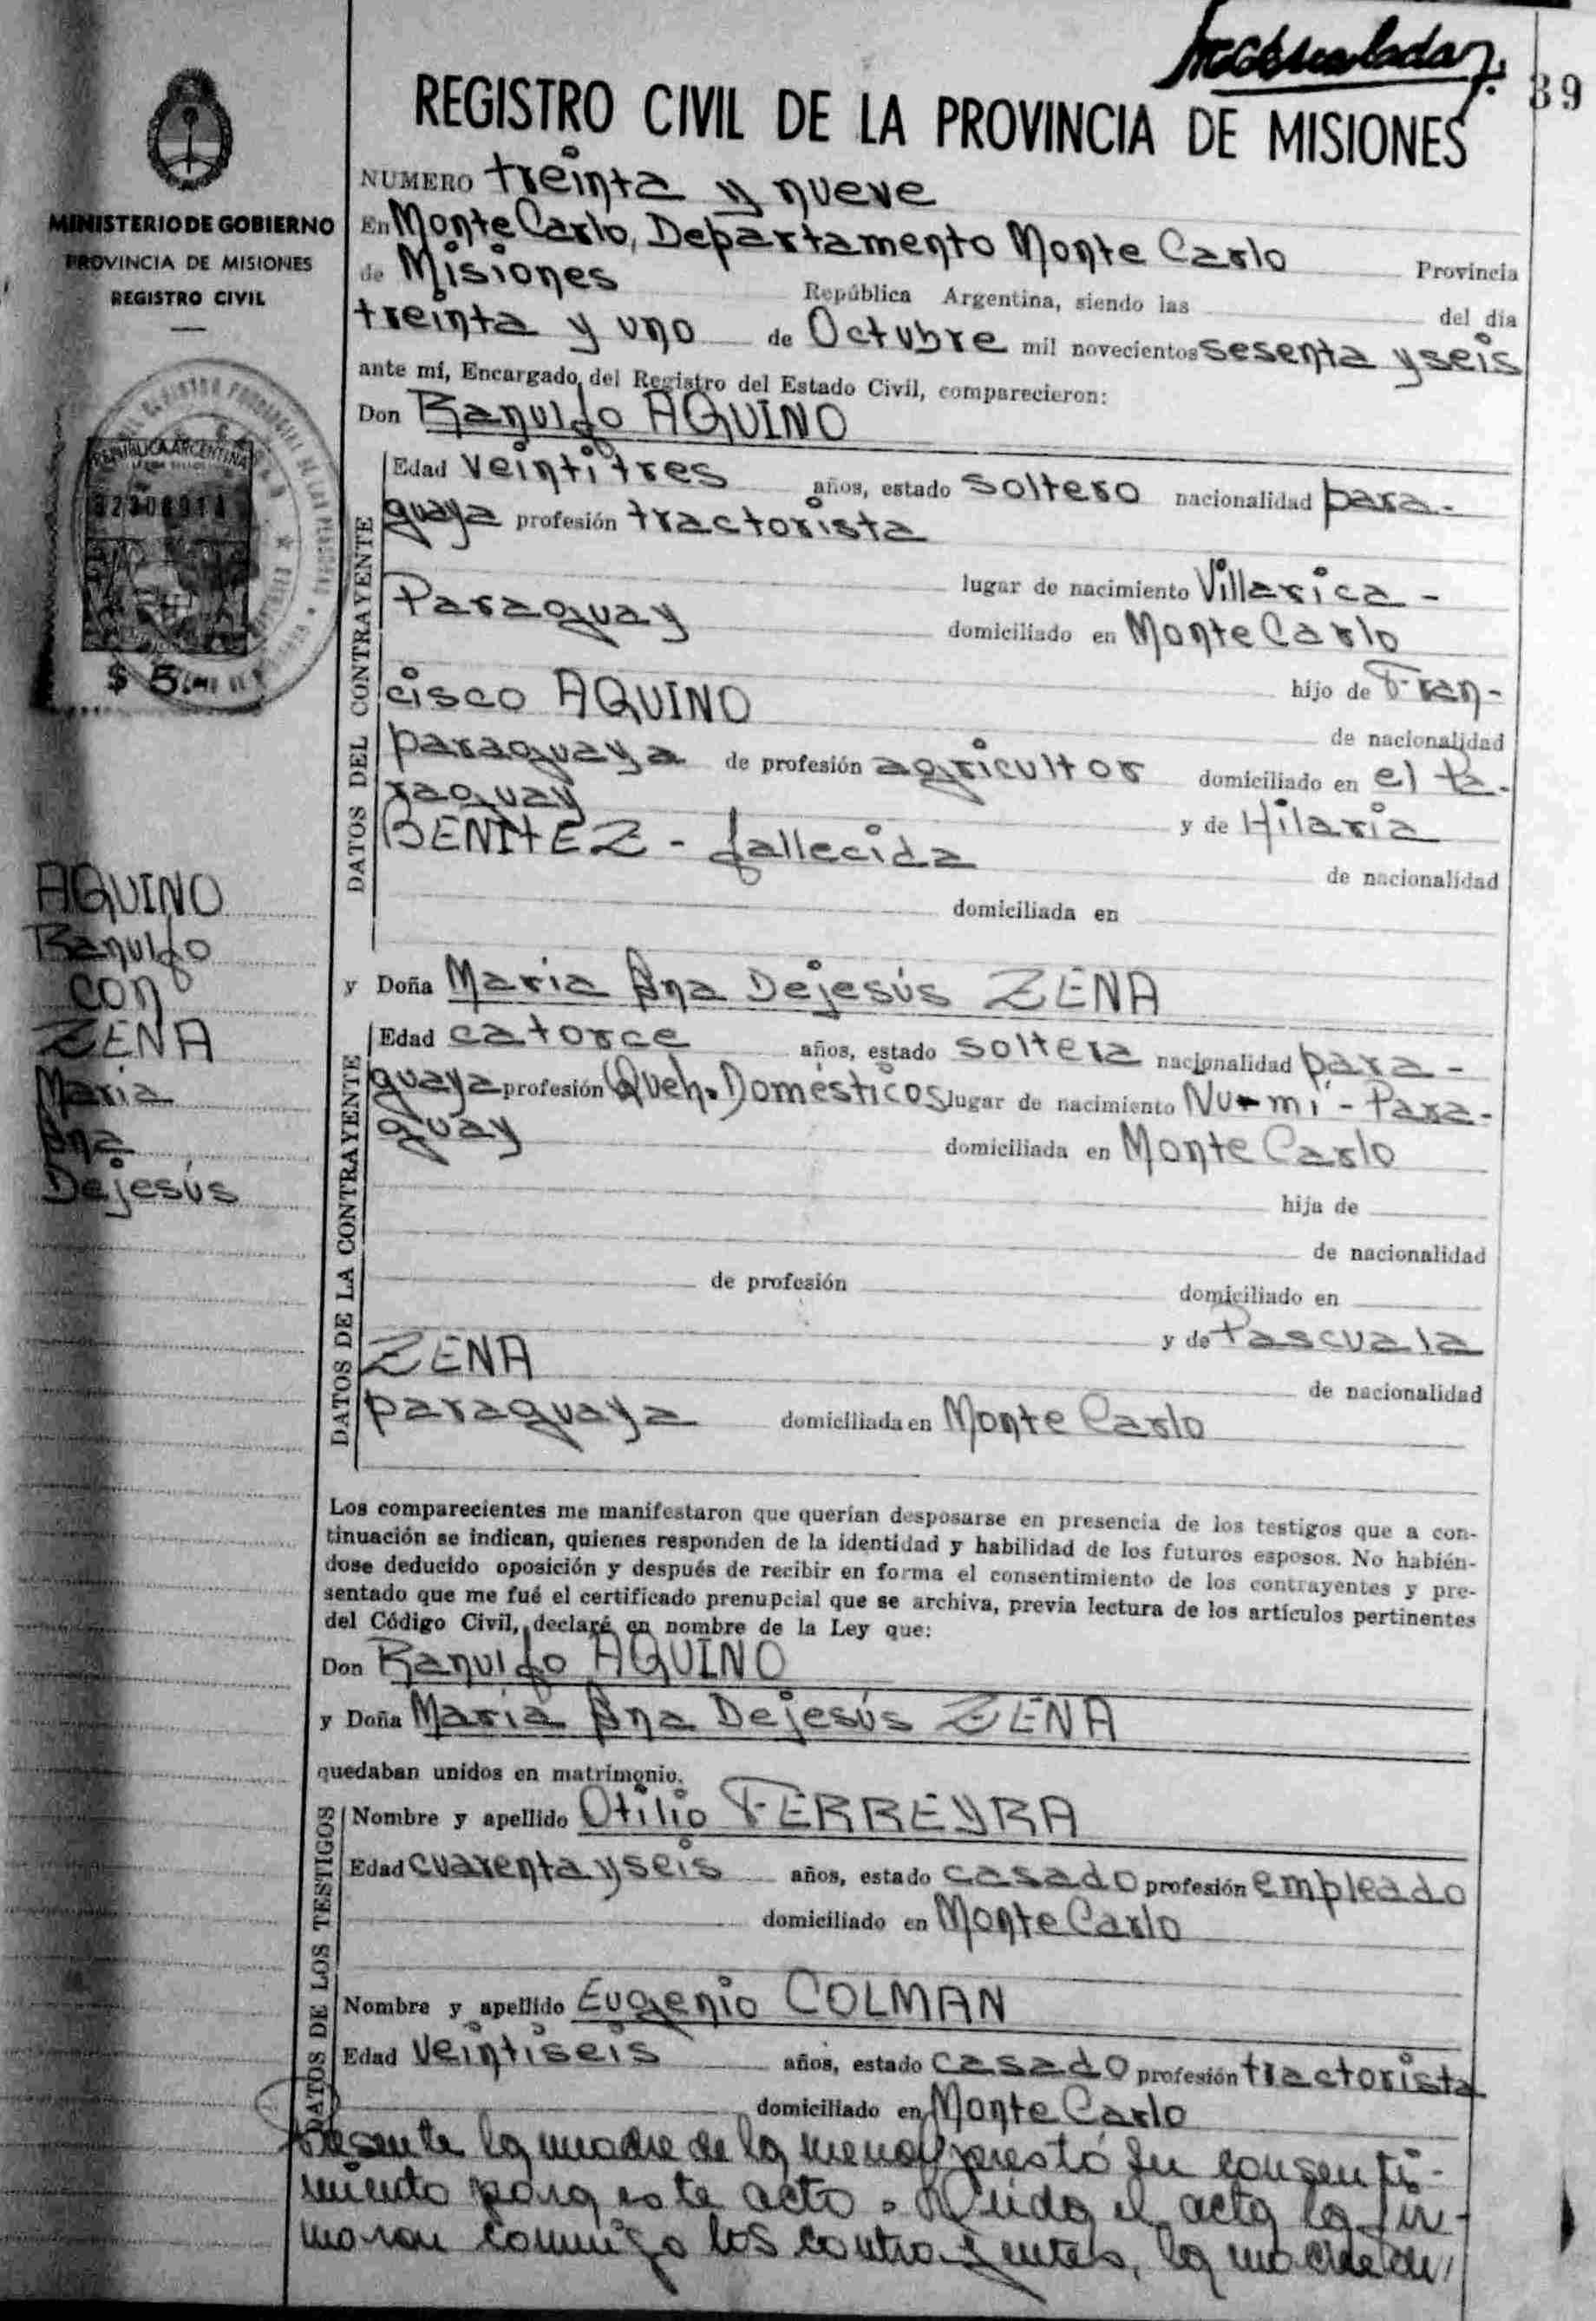 39
REGISTRO CIVIL DE LA PROVINCIA DE MISIONES
MINISTERIO DE GOBIERNO
PROVINCIA DE MISIONES
REGISTRO CIVIL
REPUBLICA ARGENTINA
$ 5
AQUINO
Ranulfo
con
ZENA
Maria
Ana
Dejesús
NUMERO treinta y nueve
En Monte Carlo, Departamento Monte Carlo Provincia
de Misiones República Argentina, siendo las del día
treinta y uno de Octubre mil novecientos sesenta y seis
ante mí, Encargado del Registro del Estado Civil, comparecieron:
Don Ranulfo AQUINO
DATOS DEL CONTRAYENTE
Edad veintitres años, estado soltero nacionalidad para-
guaya profesión tractorista
lugar de nacimiento Villarica -
Paraguay domiciliado en Monte Carlo
hijo de Fran-
cisco AQUINO
de nacionalidad
paraguaya de profesión agricultor domiciliado en el Pa-
raguay
y de Hilaria
BENITEZ - fallecida
de nacionalidad
domiciliada en
y Doña Maria Ana Dejesús ZENA
DATOS DE LA CONTRAYENTE
Edad catorce años, estado soltera nacionalidad para-
guaya profesión Queh. Domésticos lugar de nacimiento Ñu-mi - Para-
guay domiciliada en Monte Carlo
hija de
de nacionalidad
de profesión domiciliado en
y de Pascuala
ZENA
de nacionalidad
paraguaya domiciliada en Monte Carlo
Los comparecientes me manifestaron que querían desposarse en presencia de los testigos que a con-
tinuación se indican, quienes responden de la identidad y habilidad de los futuros esposos. No habién-
dose deducido oposición y después de recibir en forma el consentimiento de los contrayentes y pre-
sentado que me fué el certificado prenupcial que se archiva, previa lectura de los artículos pertinentes
del Código Civil, declaré en nombre de la Ley que:
Don Ranulfo AQUINO
y Doña Maria Ana Dejesús ZENA
quedaban unidos en matrimonio.
DATOS DE LOS TESTIGOS
Nombre y apellido Otilio FERREYRA
Edad cuarenta y seis años, estado casado profesión empleado
domiciliado en Monte Carlo
Nombre y apellido Eugenio COLMAN
Edad veintiseis años, estado casado profesión tractorista
domiciliado en Monte Carlo
Presente la madre de la menor prestó su consenti-
miento para este acto. Leida el acta la fir-
maron conmigo los contrayentes, la madre de